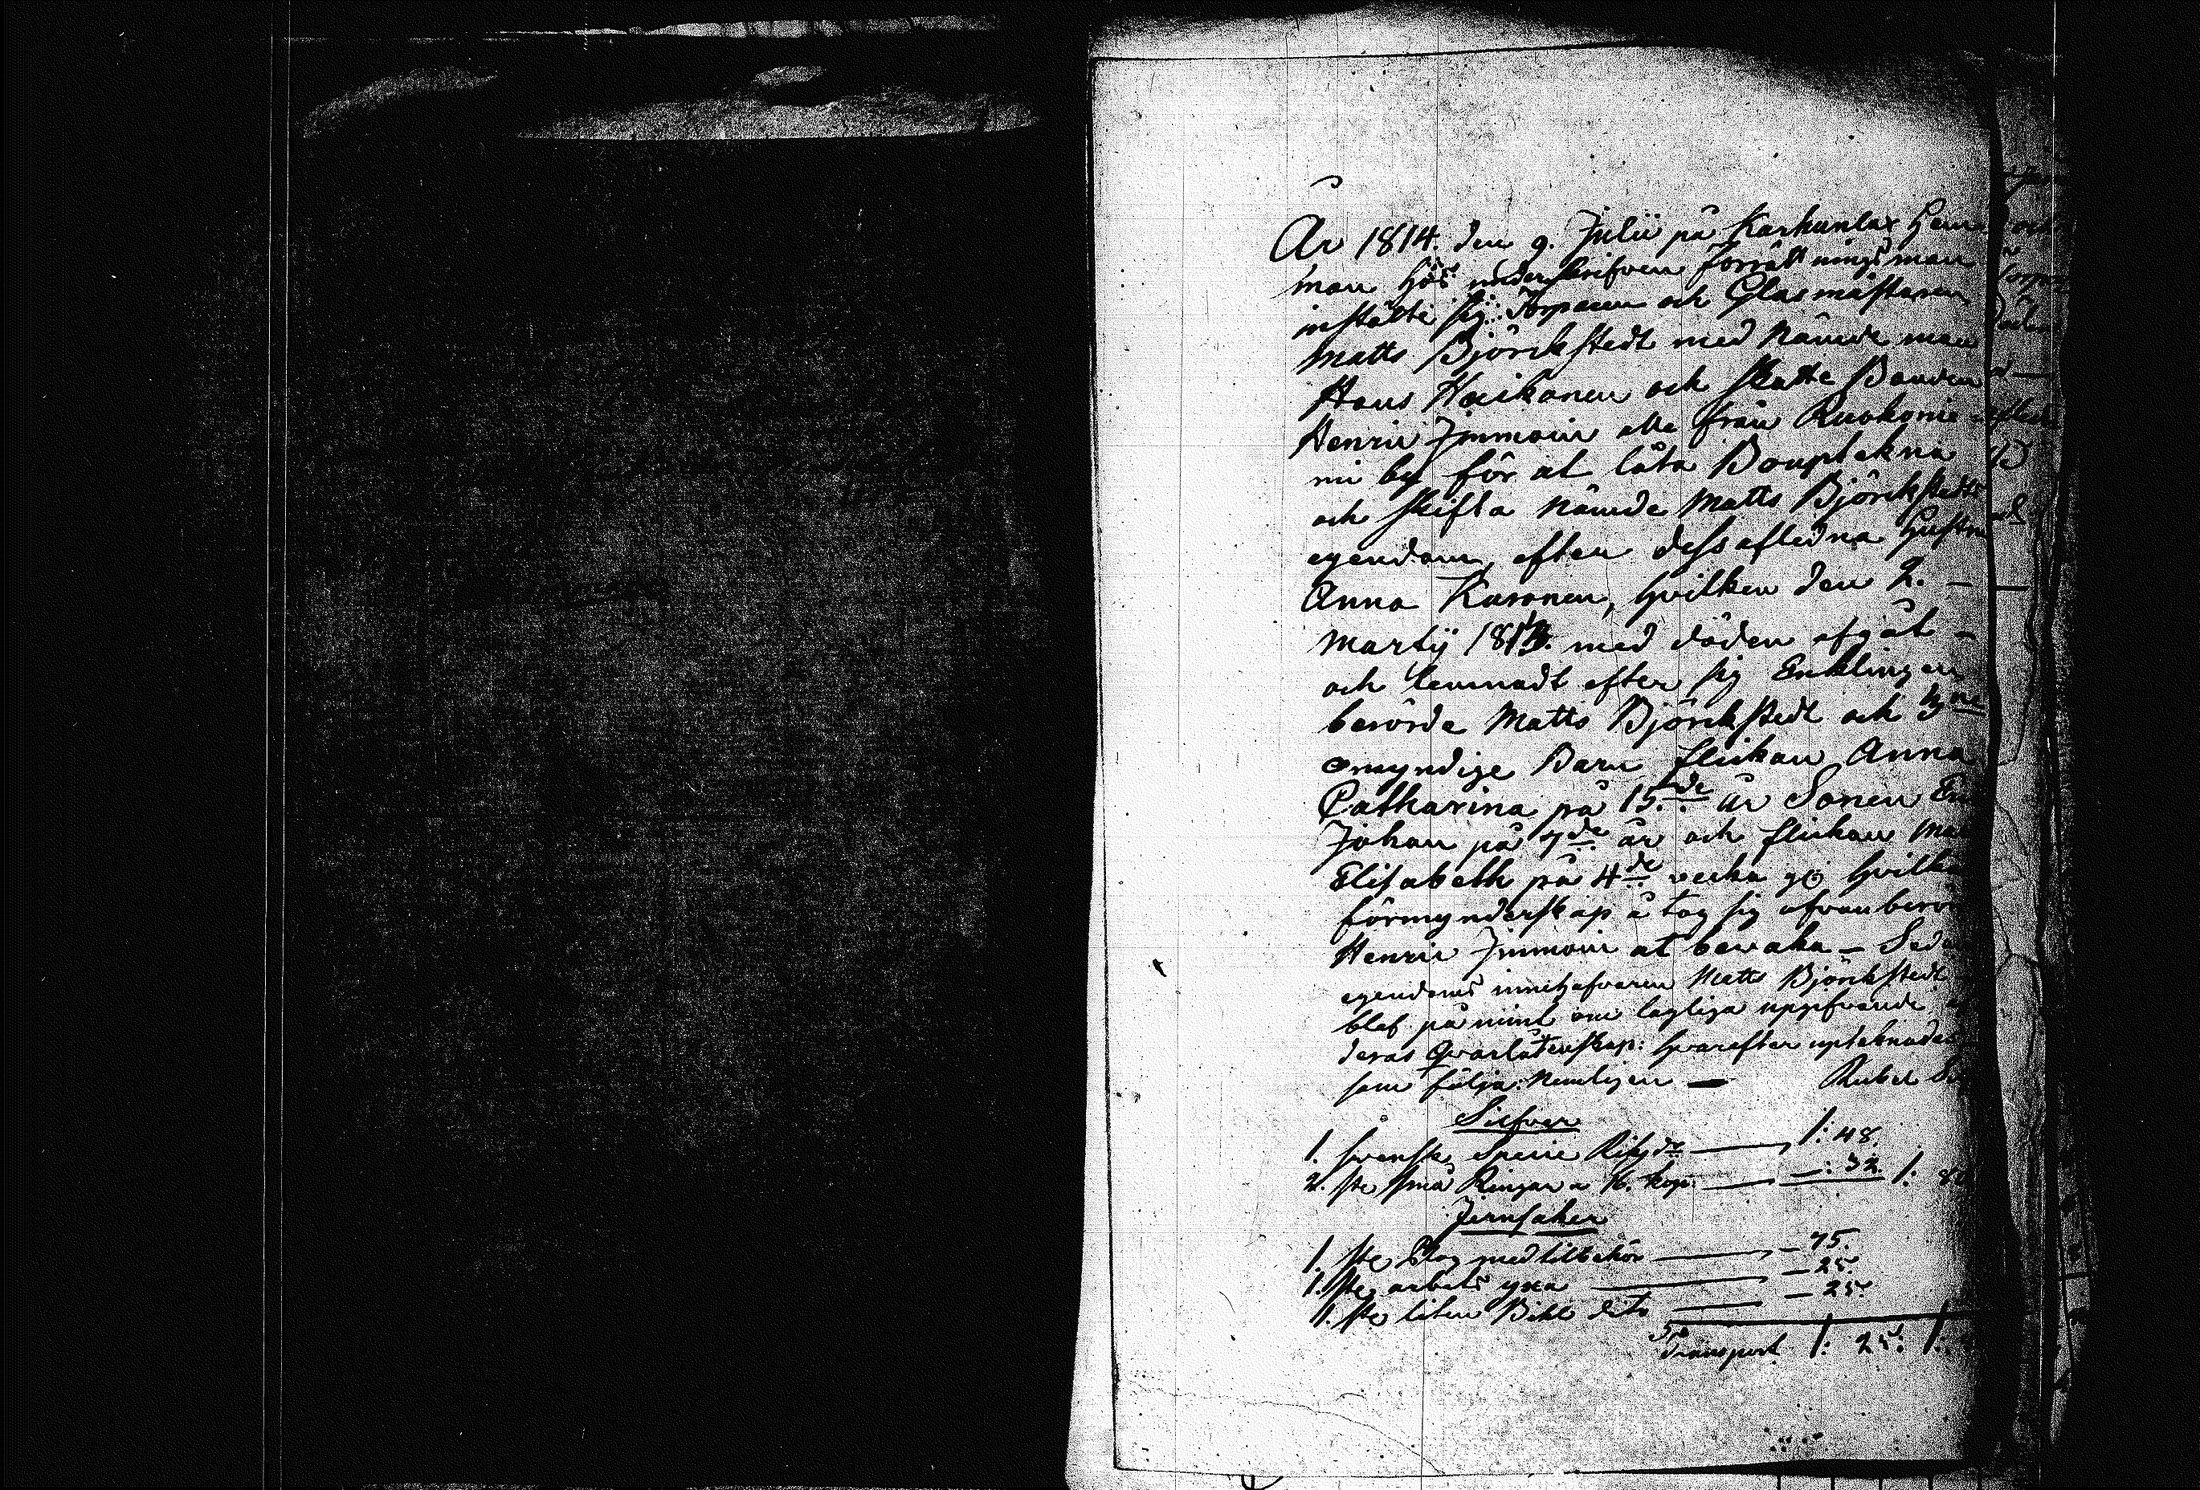 År 1814. den 9. Julii på Karhunlax Hem
man hos underskrifven Förrättningsman
instälte sig Torparen och Glasmästaren
Matts Björckstedt med Nämde man
Hans Haikonen och Skatte Bonden
Henric Immoin alla från Ruokonie
mi by för at låta Bouptekna
och skifta Nämde Matts Björckstedts
egendom, efter dess afledna Hustru
Anna Kuronen, hvilken den 2. –
Martij 1813. med döden afgåt –
och lemnadt efter sig Enklingen
berörde Matts Björckstedt och 3ne
omyndige Barn flickan Anna
Catharina på 15.de år Sonen
Johan på 7de år och flickan
Elisabeth på 4de vecka
förmynderskap åtog sig ofvanberör
Henric Immoin at bevaka –
egendoms innehafvaren Matts Björckstedt
blef påmint om lagliga uppgifvande
deras Qvarlåtenskap: hvarefter upteknades
som följa: Nemligen — Rubel
Silfver
1. svensk Specie Riksdr — 1: 48.
2. ste små Ringar a 16. kop. — –: 32. 1: 80
Jernsaker
1. ste Plog med tilbehör — – 75.
1. ste arbets yxa — – 25.
1. ste liten Bihl dito — – 25
Transport 1: 25. 1: